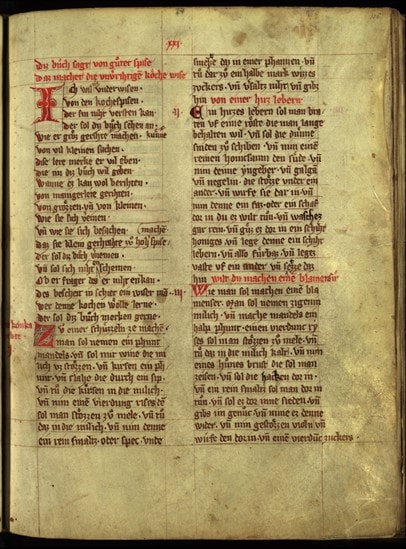 .xxi.
Diz buch sagt von guter spise
Daz machet die unverihtigē koche wise
Ich wil underwisen ·
von den kochespisen ·
der sin niht versten kan ·
der sol diz buch sehen an ·
wie er groz gerihte machē · kunne
von vil kleinen sachen ·
dise lere merke er vil eben ·
die im diz buch wil geben ·
wanne er kan wol berihten ·
von mangerleie gerihten ·
von grozzen · vñ von kleinen ·
wie sie sich vereinen ·
vñ wie sie sich besachen · machē
daz sie klein gerihte zu hoh spise
der sol diz buch vernemen ·
vñ sol sich niht schemen ·
Ob er fraget des er niht enkan ·
des bescheit in schier ein wiser mā
wer denne kochen wolle lerne ·
der sol diz buch merken gerne ·
Zu einer schüzzeln ze machē ·
man sol nemen ein phunt
mandels · vñ sol mit wine die mi
lich uz stozzen · vñ kirsen ein ph
unt · vñ slahe die durch ein sip ·
vñ tu die kirsen in die milich ·
vñ nim eine vierdung rises de
sol man stozzen zu mele · vñ tu
daz in die milich · vñ nim denne
ein rein smaltz oder spec · vnde
smeltze daz in einer phannen · vñ
tu dar zu ein halbe mark wizzes
zockers · vñ versaltz niht · vñ gibz
hin
von einer hirz lebern
Ein hirzes lebern sol man bra
ten uf eime roste die man lange
behalten wil · vñ sol die dünne
sniden zu schiben · vñ nim eime
reinen honicsaum den siude · vñ
nim denne yngeber · vñ galgā
vñ negelin · die stozze under ein
ander · vñ wirfe sie dar in · vñ
nim denne ein faz · oder ein schaf
tor in du ez wilt tun · vñ waschez
gar rein · vñ güz ez dor in ein schiht
honiges vñ lege denne ein schiht
lebern · vñ also fürbaz · vñ leges
vaste uf ein ander · vñ setze daz
hin
wilt du machen eine blamenser
Wie man sol machen eine bla
menser · Man sol nemen zigenin
milich · vñ mache mandels ein
halp phunt · einen vierdunc ry
ses sol man stozzen zu mele · vñ
tu daz in die milich kalt · vñ nim
eines hünes brust die sol man
zeisen · vñ sol die hacken dor in ·
vñ ein rein smaltz sol man dor in
tun · vñ sol ez dor inne sieden · vñ
gibs im genuc · vñ nime ez denne
wider · vñ nim gestozzen violn vñ
wirfe den dor in · vñ eine vierdūc zuckers ·